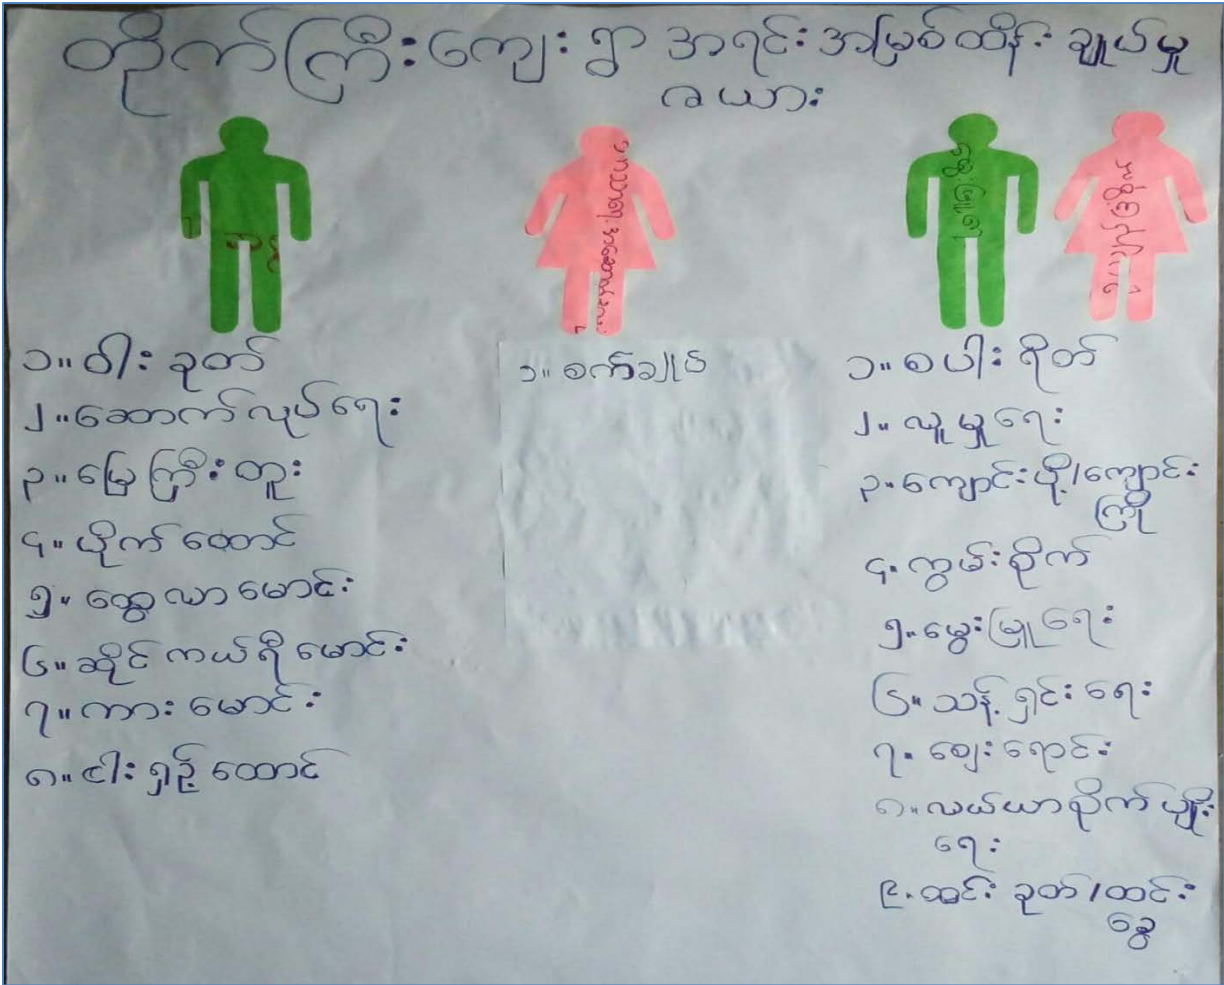 တိုက်ကြီးကျေးရွာ အရင်းအမြစ်ထိန်းချုပ်မှု
ဇယား
၁။ ဝါးခုတ်
၂။ ဆောက်လုပ်ရေး
၃။ မြေကြီးတူး
၄။ ပိုက်ထောင်
၅။ ထွေလာမောင်း
၆။ ဆိုင်ကယ်ရီမောင်း
၇။ ကားမောင်း
၈။ ငါးရှဉ့်ထောင်
၁။ စက်ချုပ်
၁။ စပါးရိတ်
၂။ လူမှုရေး
၃။ ကျောင်းပို့/ကျောင်း
ကြို
၄။ ကွမ်းစိုက်
၅။ မွေးမြူရေး
၆။ သန့်ရှင်းရေး
၇။ ဈေးရောင်း
၈။ လယ်ယာစိုက်ပျိုး
ရေး
၉။ ထင်းခုတ်/ထင်း
ခွေ